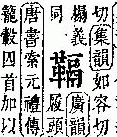 切集韻如容切
同榻義
鞷廣韻
唐書索元禮傳
籠㲉囚首加以